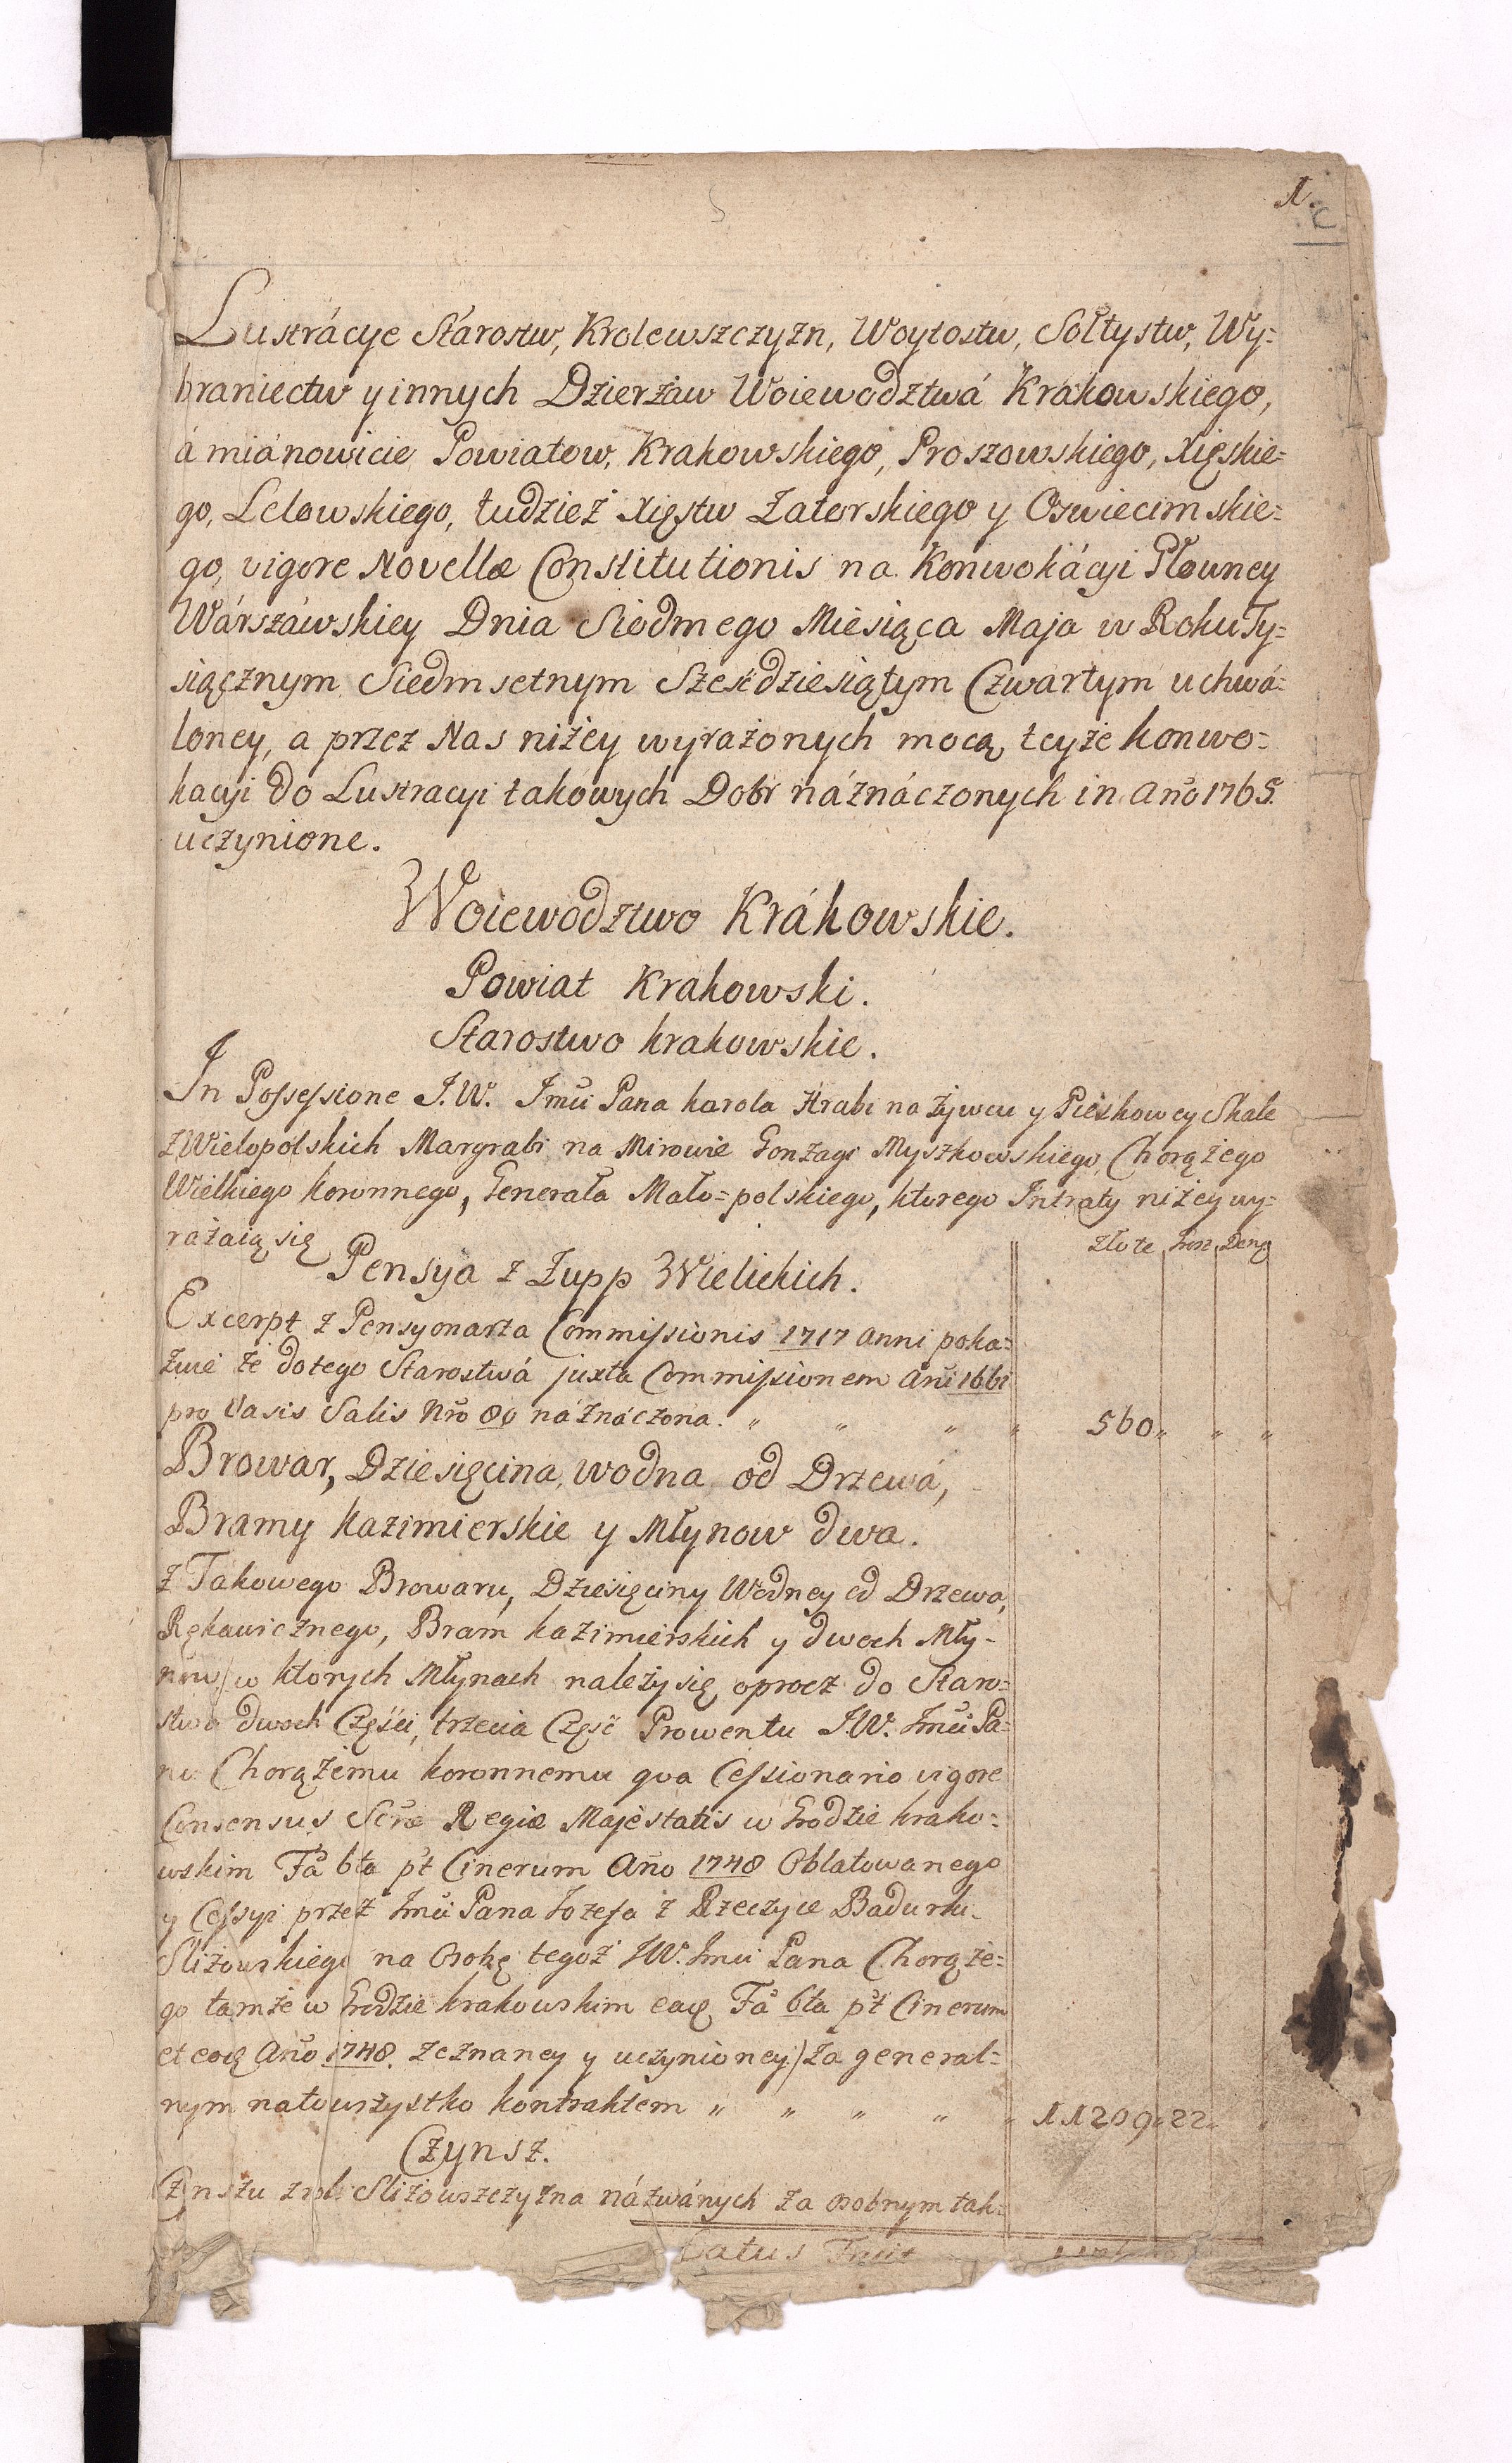 1.
C
Lustrácye Stárostw, Krolewszczyzn, Woytostw, Sołtystw, Wy=
braniectw y innych Dzierżaw Woiewodztwá Krakowskiego,
á miánowicie Powiatow, Krakowskiego, Proszowskiego, Xięskie=
go, Lelowskiego, tudzież Xięstw Zatorskiego y Oswiecimskie=
go, vigore Novellæ Constitutionis na Konwokácyi Głowney
Wárszáwskiey Dnia Siodmego Miesiąca Maja w Roku Ty=
siącznym Siedmsetnym Sześćdziesiątym Czwartym uchwá=
loney, a przez Nas niżey wyrażonych mocą teyże konwo=
kacyi do Lustracyi takowych Dobr náznáczonych in Anõ 1765.
uczynione.
Woiewodztwo Krákowskie.
Powiat Krakowski.
Starostwo krakowskie.
In Possessione J.W. Jmci Pana karola Hrabi na Żywcu y Pieskowey Skale
z Wielopolskich Margrabi na Mirowie Gonzagi Myszkowskiego, Chorążego
Wielkiego koronnego, Generała Mało=polskiego, ktorego Intraty niżey wy=
rażaią się
złote gro: Deng
Pensya z Żupp Wielickich.
Excerpt z Pensyonarza Commissionis 1717 anni poka=
zuie że do tego Starostwá juxta Commissionem Añi 1661
pro Vasis Salis Nrõ 80 náznáczona. " " " " 560 " " "
Browar, Dziesięcina, wodna od Drzewá,
Bramy kazimierskie y Młynow dwa.
z Takowego Browaru, Dziesięciny Wodney od Drzewa,
Rękawicznego, Bram kazimierskich y dwoch Mły=
now/ w ktorych Młynach należy się oprocz do Staro=
stwa dwoch Części, trzecia Część Prowentu J.W. Jmci Pa=
nu Chorążemu koronnemu qva Cessionario vigore
Consensus Serẽ Regiæ Majestatis w Grodzie krako=
wskim Fã 6ta p̃t Cinerum Añõ 1748 Oblatowanego
y Cessyi przez Jmci Pana Jozefa z Rzeczyce Badurku
Sliżowskiego na Osobę tegoż JW. Jmci Pana Chorąże=
go tamże w Grodzie krakowskim eaq Fã 6ta p̃t Cinerum
et eoq Añõ 1748. zeznaney y uczynioney/) za general=
nym na to wszystko kontraktem " " " " " 11209 " 22 "
Czynsz.
Sliżowszczyzna názwánych za osobnym tak=
Latus Facit